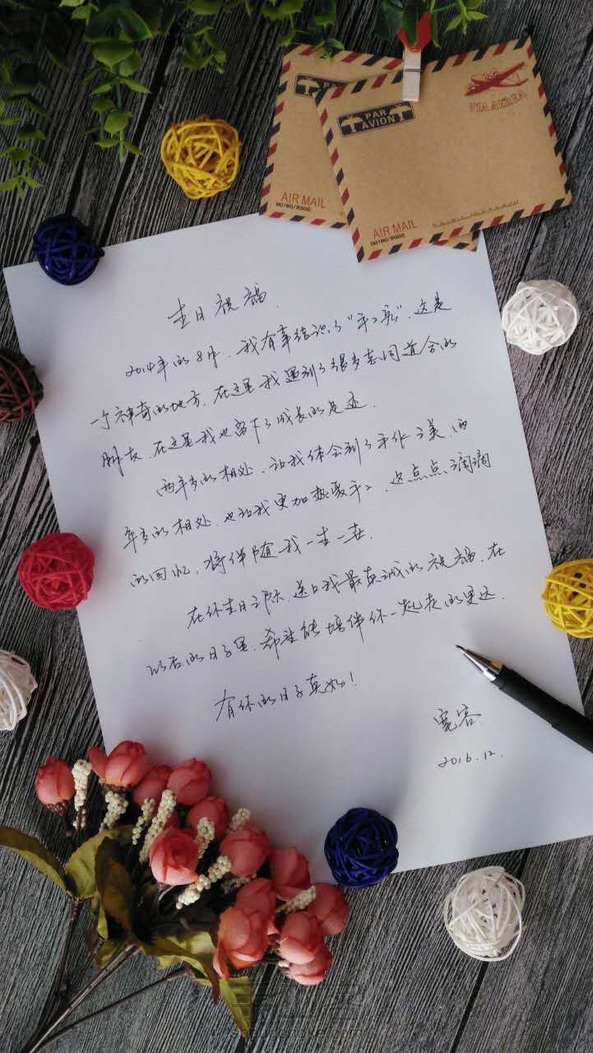 PAR
AVION
VIA AEREA
AIR MAIL
00180/2000
AIR MAIL
00180/2000
生日祝福
2014年的8月，我有幸结识了“手工客”，这是
一个神奇的地方，在这里我遇到了很多志同道合的
朋友，在这里我也留下了成长的足迹。
两年多的相处，让我体会到了手作之美，两
年多的相处，也让我更加热爱手工，这点点滴滴
的回忆，将伴随我一生一世。
在你生日之际，送上我最真诚的祝福，在
以后的日子里，希望能陪伴你一起走的更远。
有你的日子真好！
宽容
2016.12.